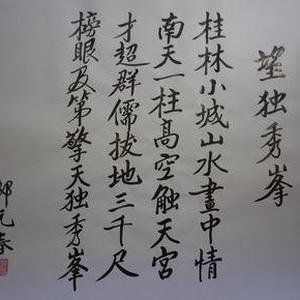 望独秀峯
桂林小城山水畫中情
南天一柱高空触天宫
才超群儒拔地三千尺
榜眼及第擎天独秀峯
邹元春